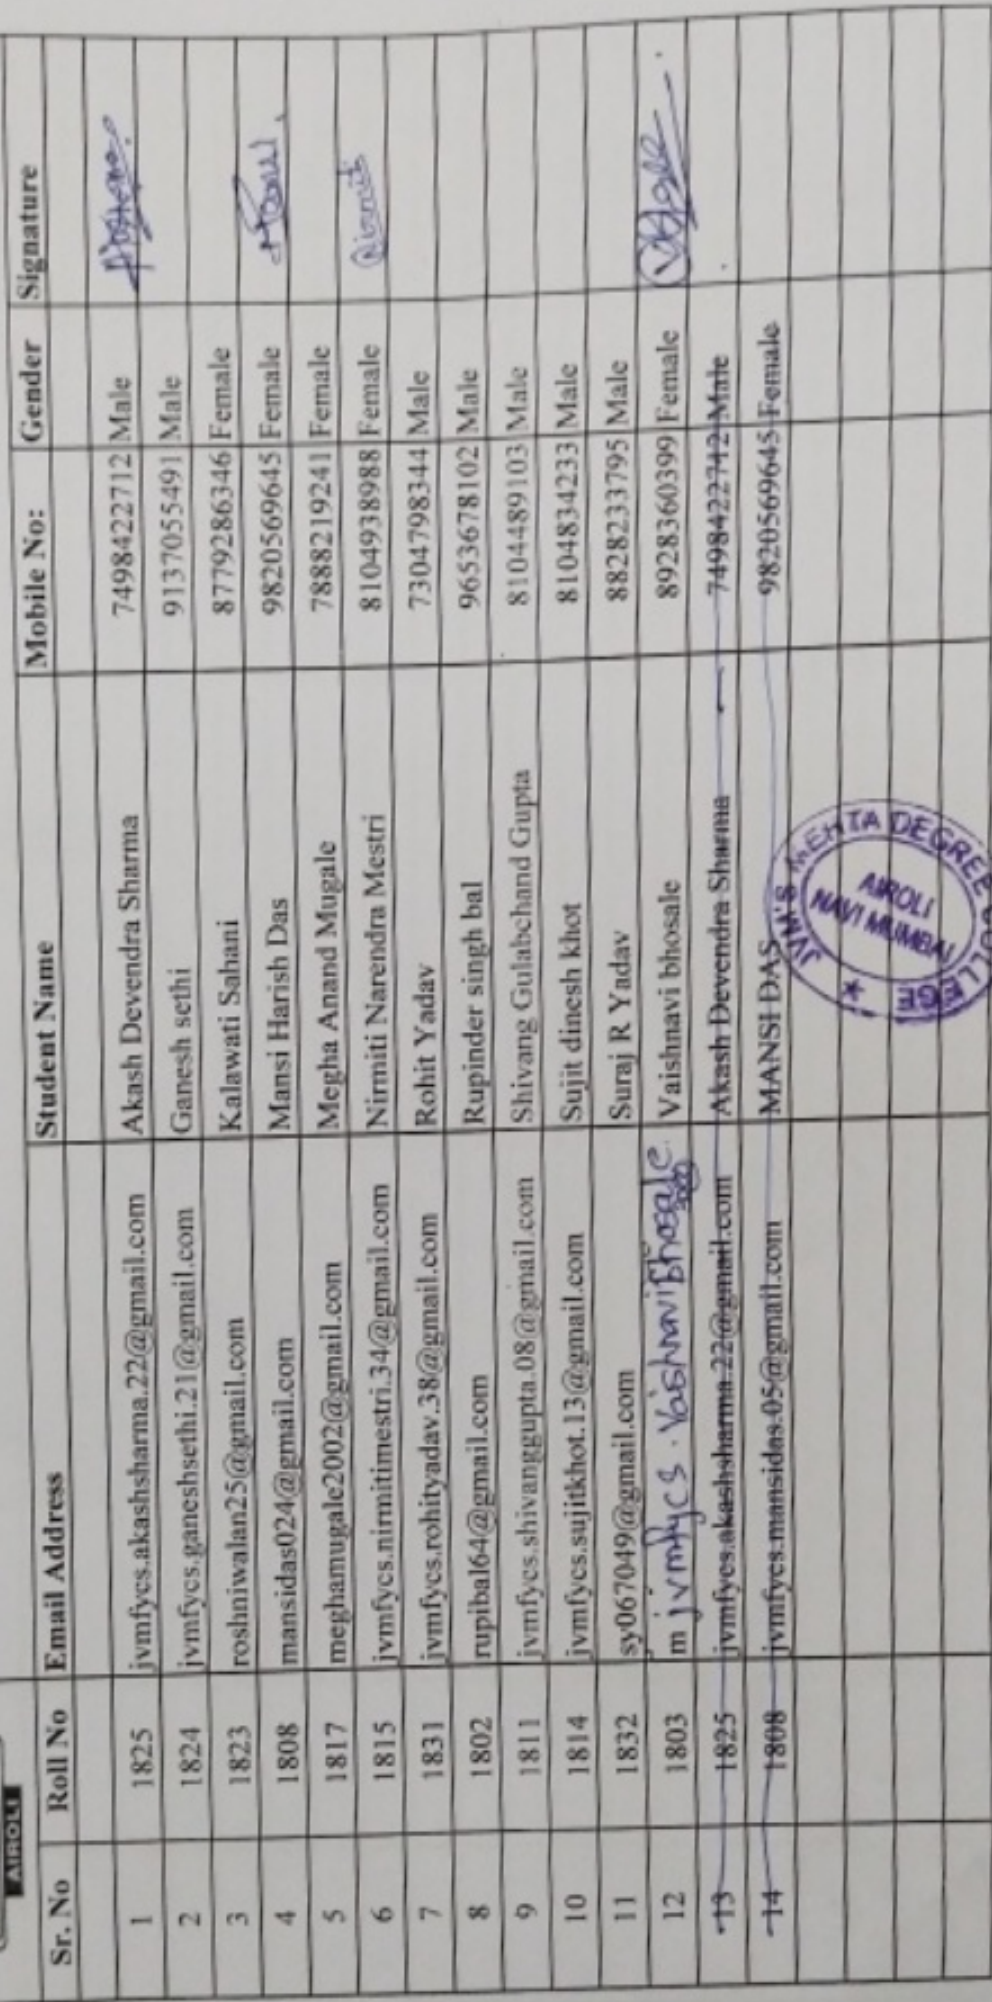 AIROLI
Sr. No Roll No Email Address Student Name Mobile No: Gender Signature
1 1825 jvmfycs.akashsharma.22@gmail.com Akash Devendra Sharma 7498422712 Male
2 1824 jvmfycs.ganeshsethi.21@gmail.com Ganesh sethi 9137055491 Male
3 1823 roshniwalan25@gmail.com Kalawati Sahani 8779286346 Female
4 1808 mansidas024@gmail.com Mansi Harish Das 9820569645 Female
5 1817 meghamugale2002@gmail.com Megha Anand Mugale 7888219241 Female
6 1815 jvmfycs.nirmitimestri.34@gmail.com Nirmiti Narendra Mestri 8104938988 Female Nirmiti
7 1831 jvmfycs.rohityadav.38@gmail.com Rohit Yadav 7304798344 Male
8 1802 rupibal64@gmail.com Rupinder singh bal 9653678102 Male
9 1811 jvmfycs.shivanggupta.08@gmail.com Shivang Gulabchand Gupta 8104489103 Male
10 1814 jvmfycs.sujitkhot.13@gmail.com Sujit dinesh khot 8104834233 Male
11 1832 sy067049@gmail.com Suraj R Yadav 8828233795 Male
12 1803 m jvmfycs.vaishnavibhosale Vaishnavi bhosale 8928360399 Female
13 1825 jvmfycs.akashsharma.22@gmail.com Akash Devendra Sharma 7498422712 Male
14 1808 jvmfycs.mansidas.05@gmail.com MANSI DAS 9820569645 Female
JVM'S MEHTA DEGREE COLLEGE
AIROLI
NAVI MUMBAI